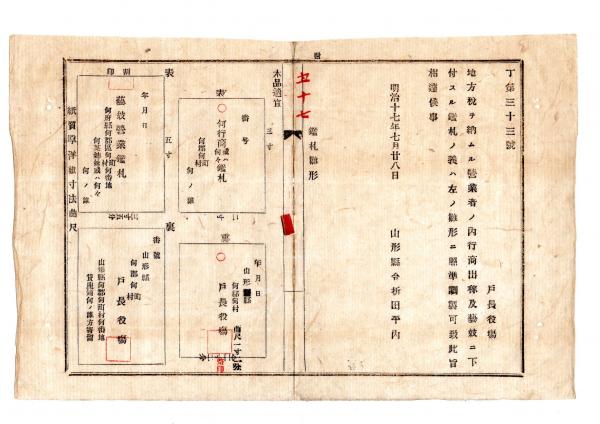 丁第三十三號
戶長役場
地方稅ヲ納ムル營業者ノ內行商出稼及藝妓ニ下
付スル鑑札ノ義ハ左ノ雛形ニ照準調製可致此旨
相達候事
明治十七年七月廿八日
山形縣令折田平內
五十七
鑑札雛形
木品適宜
三寸
表
番号
何行商或ハ何々鑑札
何郡何村
何ノ誰
裏
年月日
山形縣
何郡何村
戶長役場
曲尺一寸二分
表
五寸
割印
年月日
藝妓營業鑑札
何府縣何郡區何町村何番地
何某姉妹或ハ何々
何ノ誰
裏
番號
山形縣
何郡何町村
戶長役場
山形縣何郡何町村何番地
貸座敷何ノ誰方寄留
紙質厚洋紙寸法曲尺